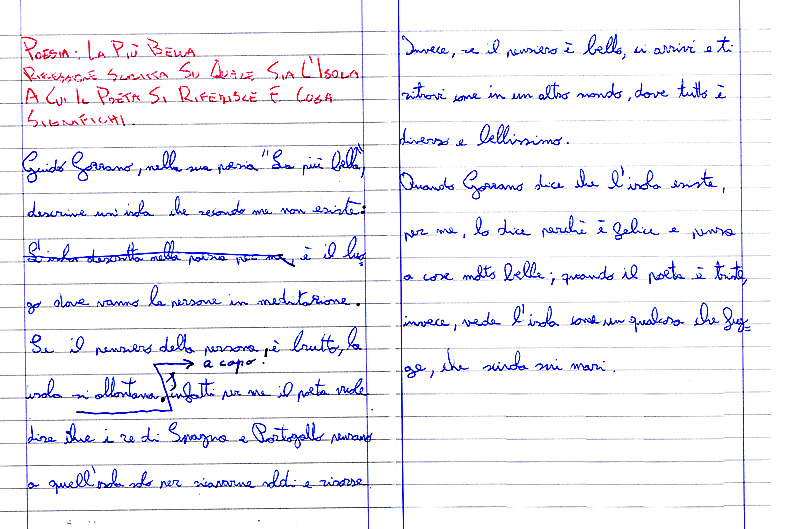 POESIA: LA PIÙ BELLA
RIFLESSIONE SCRITTA SU QUALE SIA L'ISOLA
A CUI IL POETA SI RIFERISCE E COSA
SIGNIFICHI.
Guido Gozzano, nella sua poesia "La più bella",
descrive un'isola che secondo me non esiste:
L'isola descritta nella poesia per me, è il luo-
go dove vanno le persone in meditazione.
Se il pensiero della persona, è brutto, la
→ a capo.
isola si allontana. Infatti per me il poeta vuole
dire che i re di Spagna e Portogallo pensano
a quell'isola solo per ricavarne soldi e risorse.
Invece, se il pensiero è bello, ci arrivi e ti
ritrovi come in un altro mondo, dove tutto è
diverso e bellissimo.
Quando Gozzano dice che l'isola esiste,
per me, lo dice perché è felice e pensa
a cose molto belle; quando il poeta è triste,
invece, vede l'isola come un qualcosa che fug-
ge, che scivola sui mari.